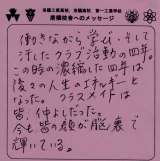 母校へのメッセージ
働きながら学び、そして
汗したクラブ活動の四年。
この時の濃縮した四年は、
後々の人生のエネルギーと
なった。クラスメイトは
皆、仲よしだった。
今も皆の顔が脳裏で
輝いている。